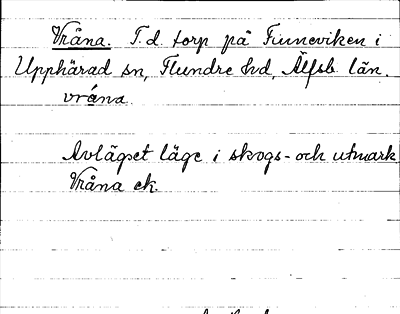 Vråna. T.d. torp på Finneviken i
Upphärad sn, Flundre hd, Älfsb. län.
vrǻna
Avlägset läge i skogs- och utmark
Vråna ek.